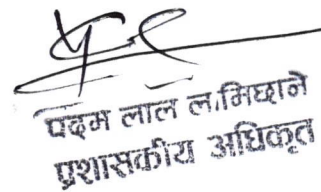 पदम लाल लामिछाने
प्रशासकीय अधिकृत